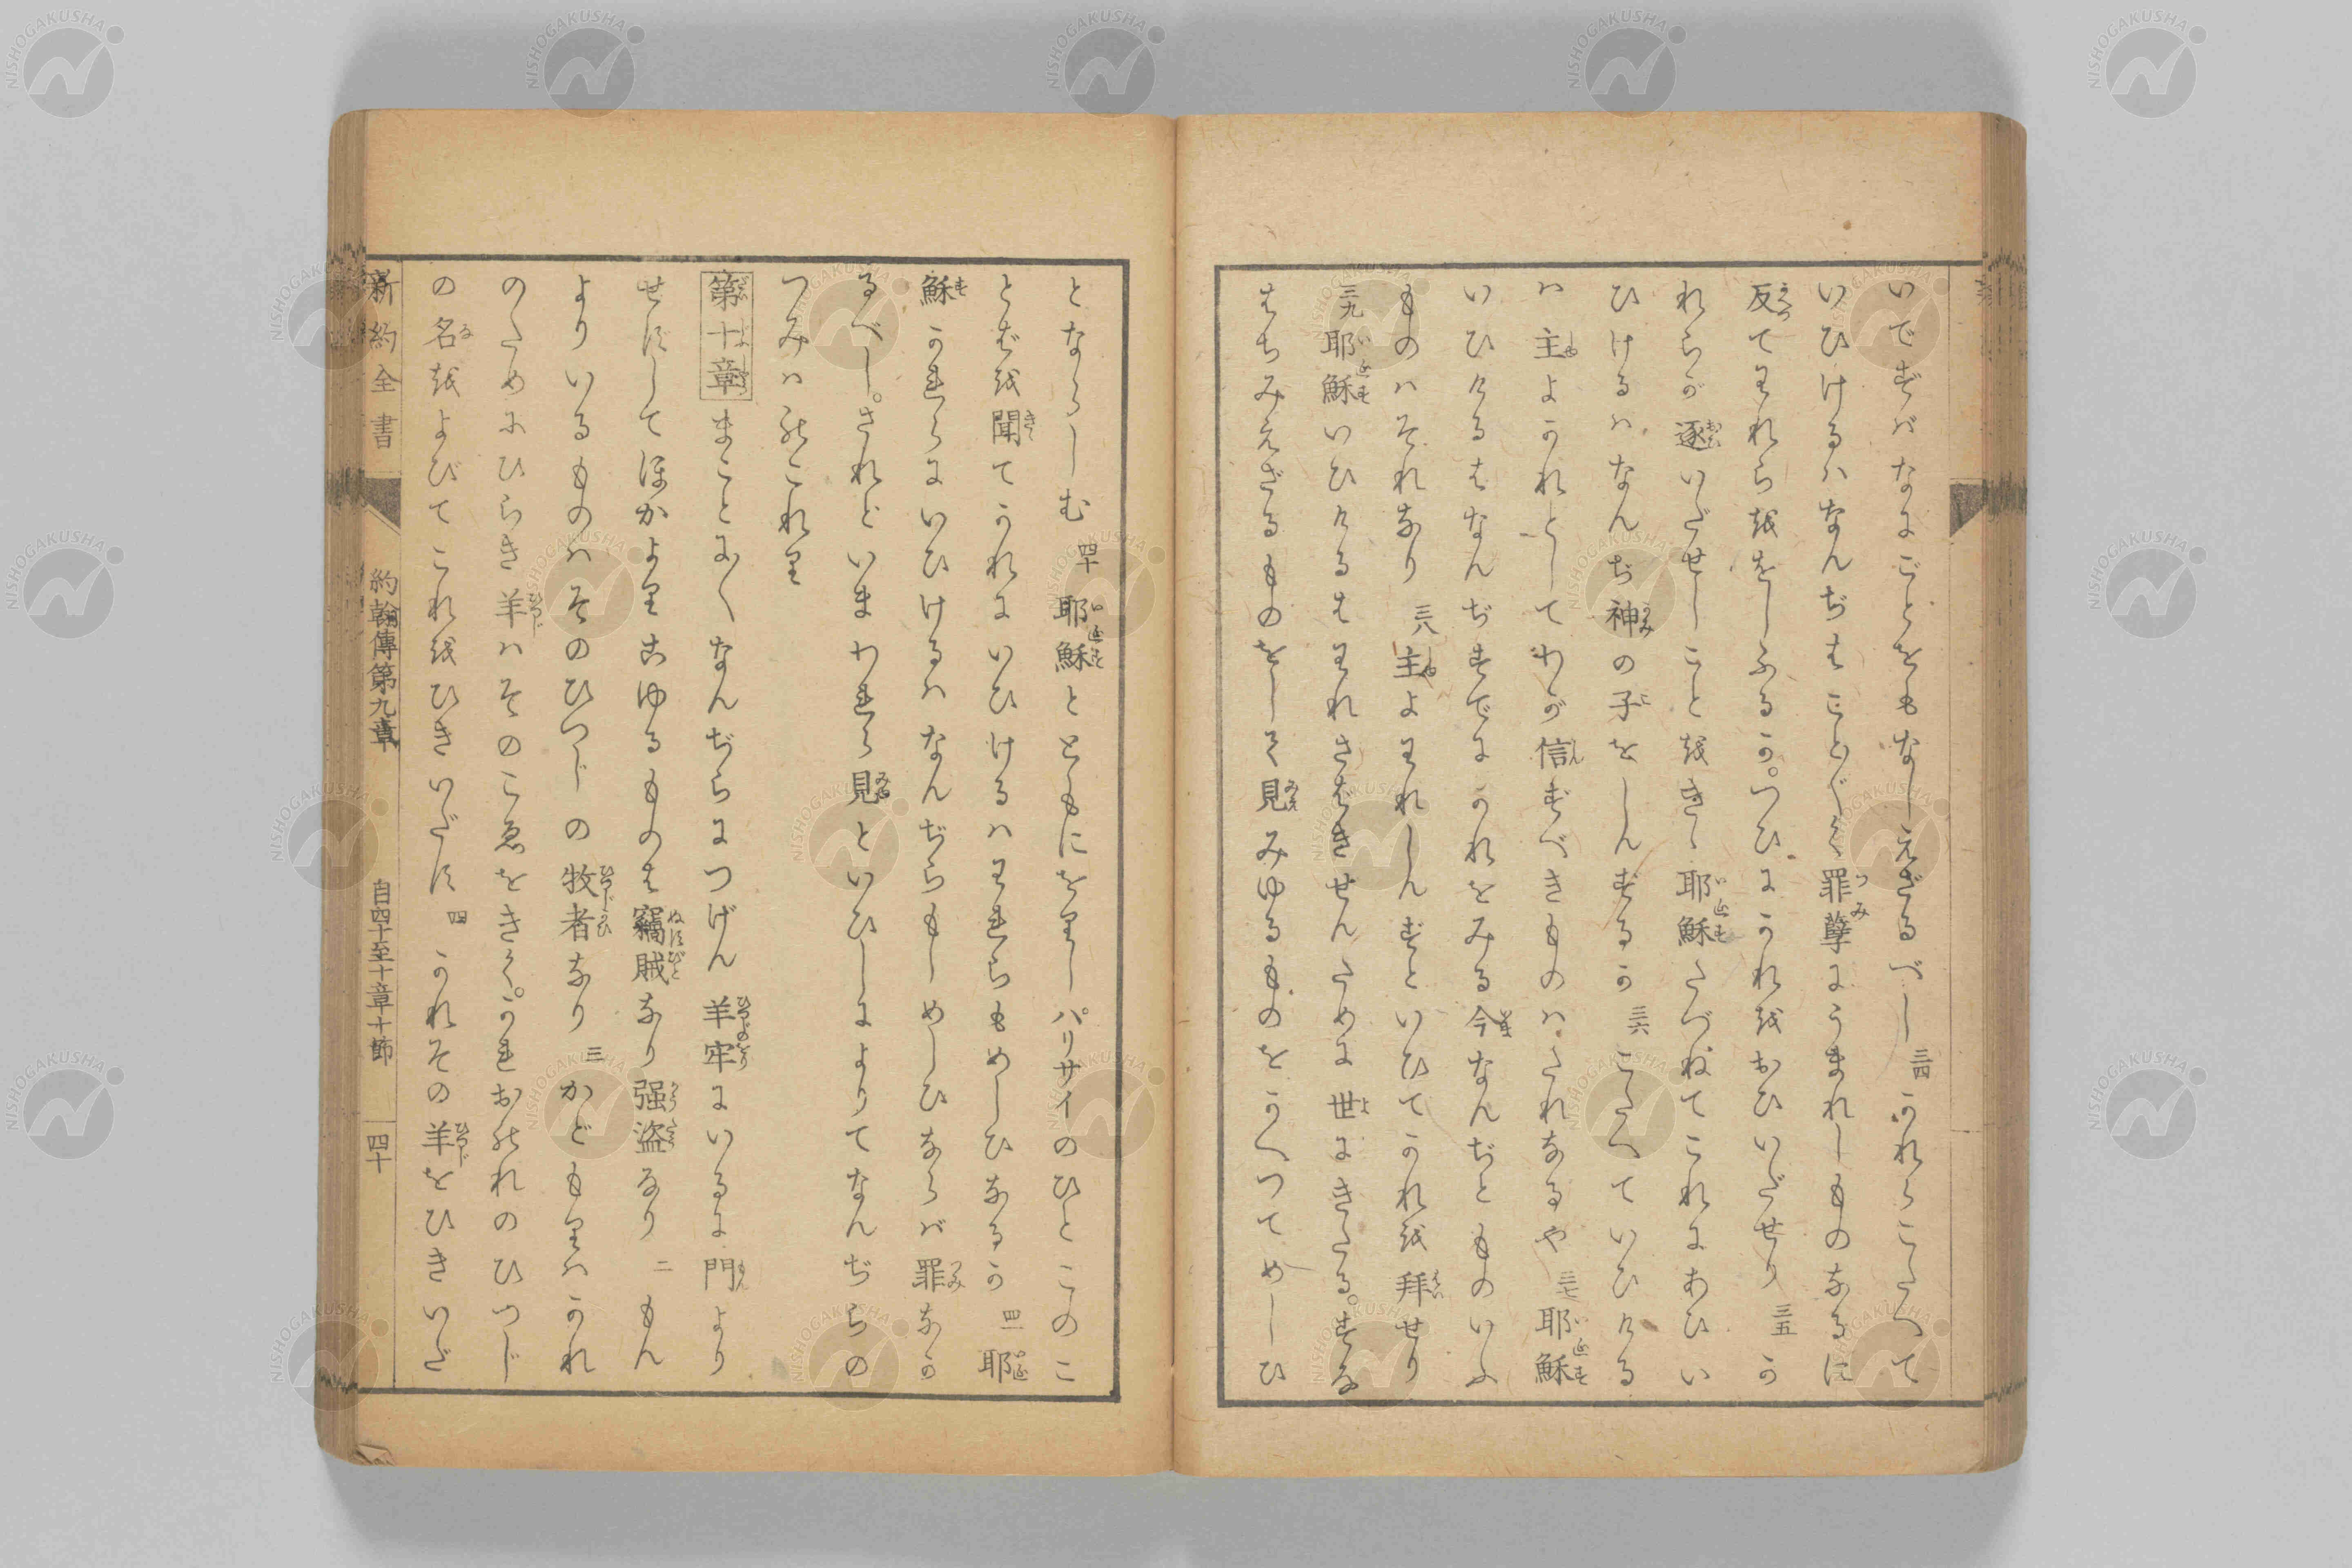 いでずバなにごとをもなしえざるべし 三四 かれらこたへて
いひけるハなんぢはことごとく罪孽にうまれしものなるに
反てわれらををしふるか。つひにかれをおひいだせり 三五 か
れらが逐いだせしことをきゝ耶穌たづねてこれにあひい
ひけるハなんぢ神の子をしんずるか 三六 こたへていひける
ハ主よかれとしてわが信ずべきものハたれなるや 三七 耶穌
いひけるはなんぢすでにかれをみる今なんぢとものいふ
ものハそれなり 三八 主よわれしんずといひてかれを拜せり
三九 耶穌いひけるはわれさばきせんために世にきたる。すな
はちみえざるものをして見みゆるものをかへつてめしひ
とならしむ 四十 耶穌とともにをりしパリサイのひとこのこ
とばを聞てかれにいひけるハわれらもめしひなるか 四一 耶
穌かれらにいひけるハなんぢらもしめしひならバ罪なか
るべし。されどいまわれら見といひしによりてなんぢらの
つみハのこれり
第十章 まことに〱なんぢらにつげん羊牢にいるに門より
せずしてほかよりこゆるものは竊賊なり强盗なり 二 もん
よりいるものハそのひつじの牧者なり 三 かどもりハかれ
のためにひらき羊ハそのこゑをきく。かれおのれのひつじ
の名をよびてこれをひきいだす 四 かれその羊をひきいだ
新約全書 約翰傳第九章 自四十至十章十節 四十
NISHOGAKUSHA